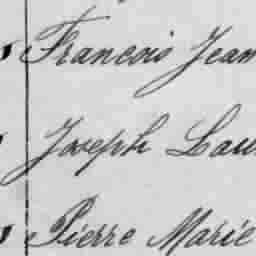 Francois Jean
Joseph Lau
Pierre Marie